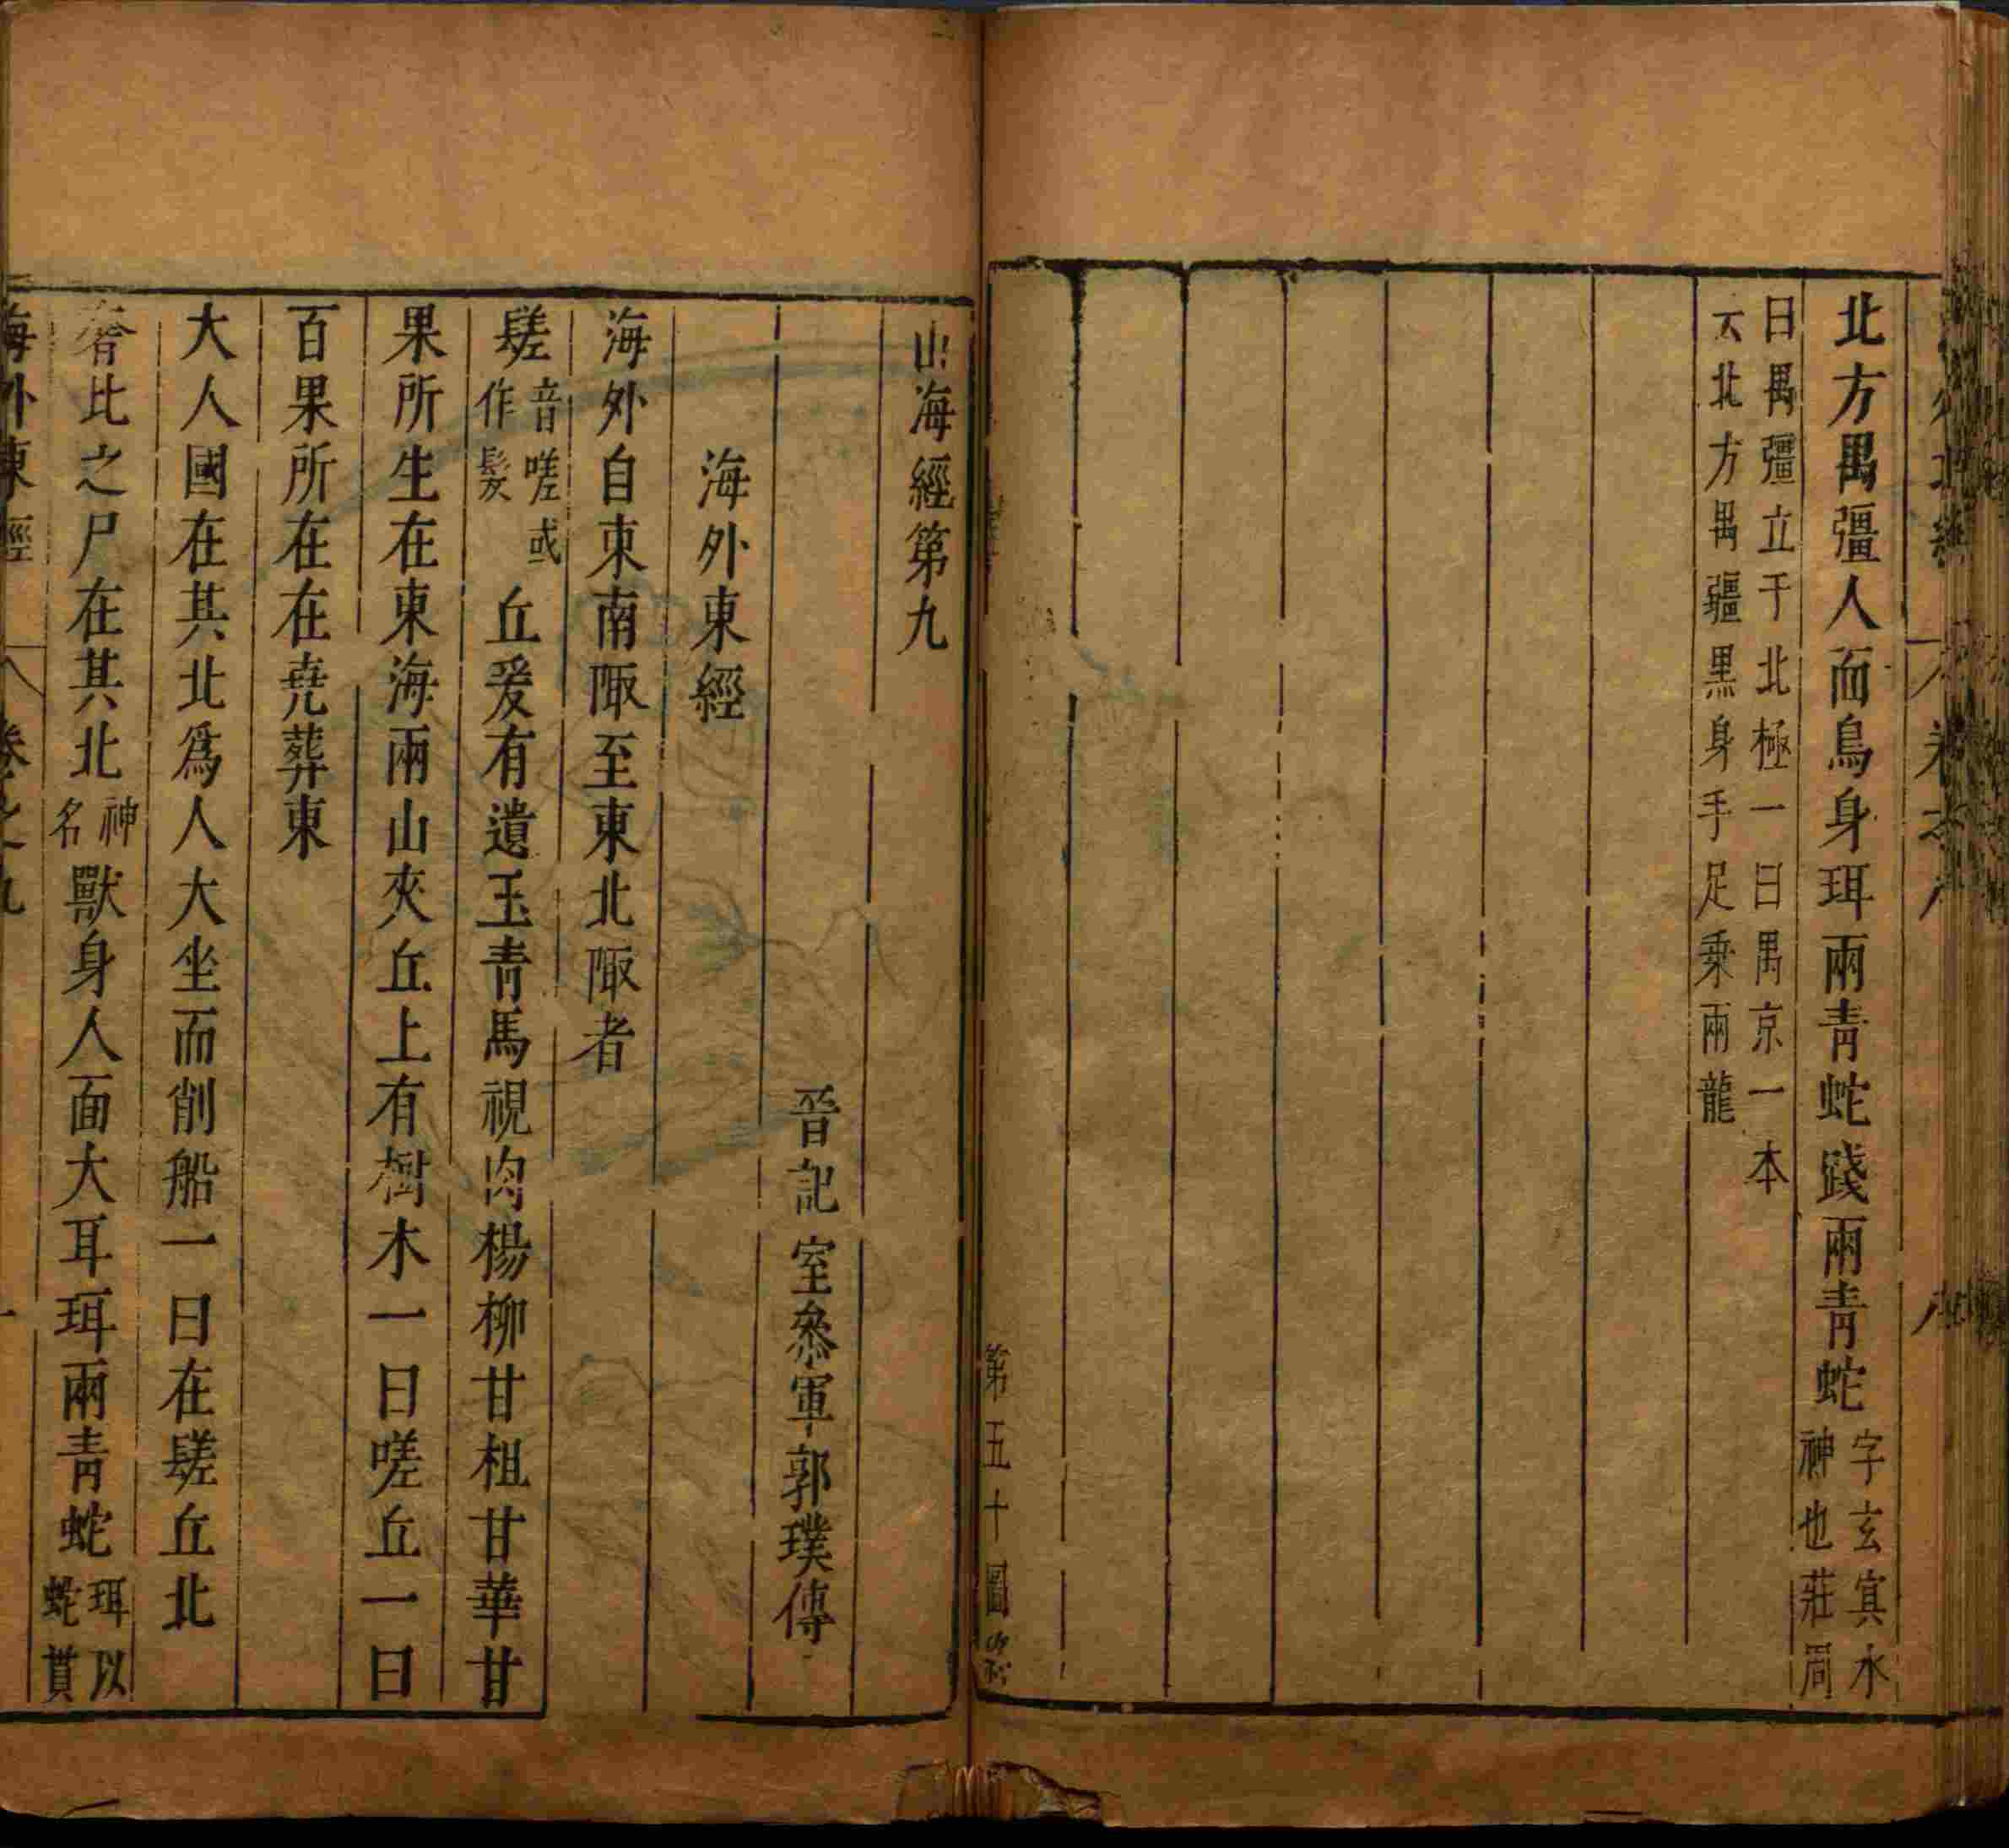 北方禺彊人面鳥身珥兩青蛇踐兩青蛇字玄冥水神也莊周
曰禺彊立于北極一曰禺京一本
云北方禺疆黒身手足乘兩龍
第五十圖
山海經第九
晉記室叅軍郭璞傳
海外東經
海外自東南陬至東北陬者
𨲠音嗟或作髮丘爰有遺玉青馬視肉楊柳甘柤甘華甘
果所生在東海兩山夾丘上有樹木一曰嗟丘一曰
百果所在在堯葬東
大人國在其北爲人大坐而削船一曰在𨲠丘北
奢比之尸在其北神名獸身人面大耳珥兩青蛇珥以蛇貫
海外東經 卷之九 一